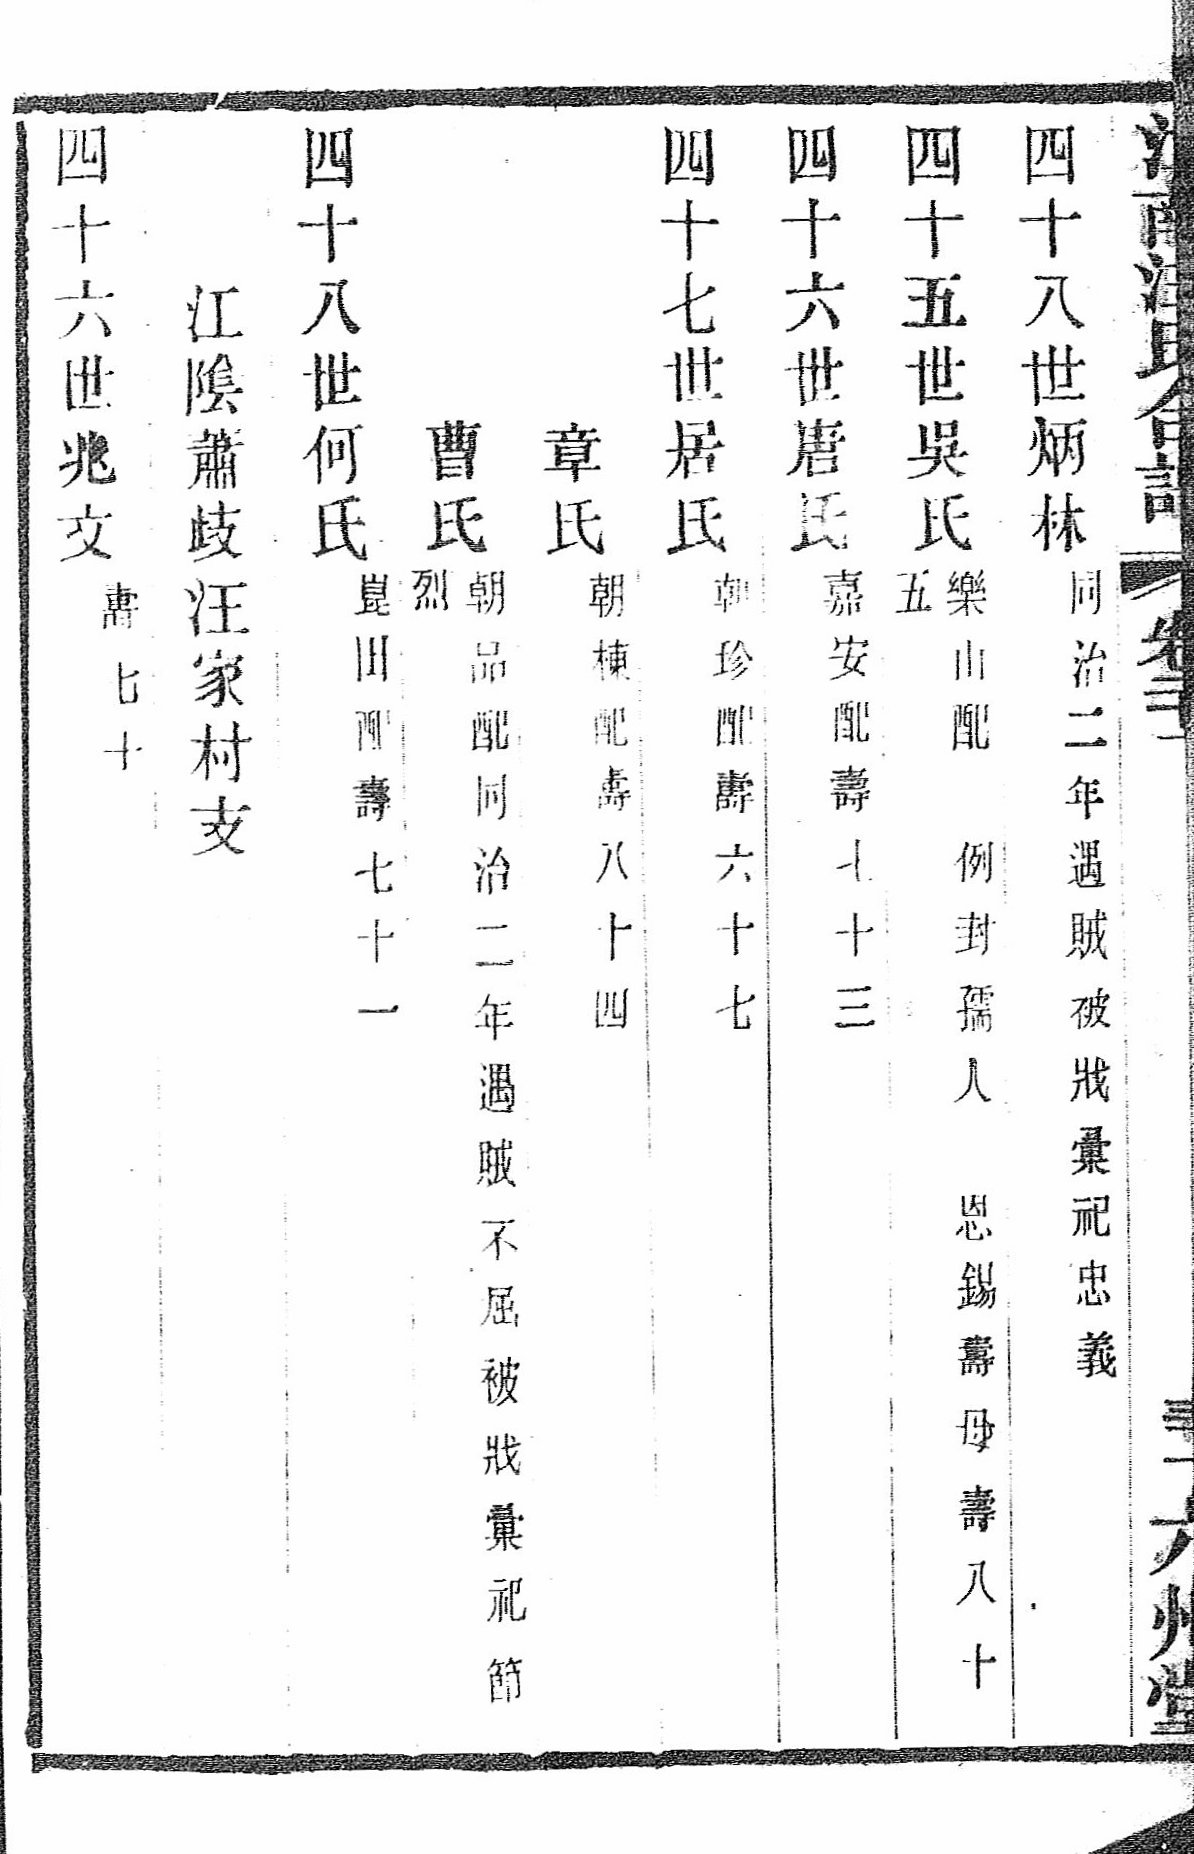 四十八世炳林 同治二年遇賊被戕彙祀忠義
四十五世吳氏 樂山配 例封孺人 恩錫壽母壽八十五
四十六世唐氏 嘉安配壽七十三
四十七世居氏 朝珍配壽六十七
章氏 朝棟配壽八十四
曹氏 朝品配同治二年遇賊不屈被戕彙祀節烈
四十八世何氏 崑田配壽七十一
江陰蕭歧汪家村支
四十六世兆文 壽七十